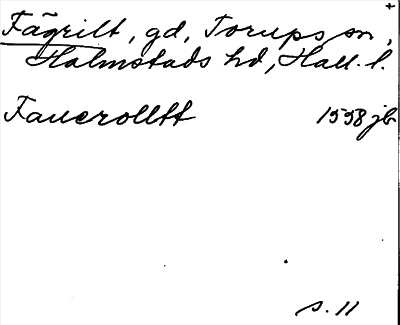 +
Fägrilt, gd, Torups sn,
Halmstads hd, Hall. l.
Faucrolltt 1558 jb
s. 11